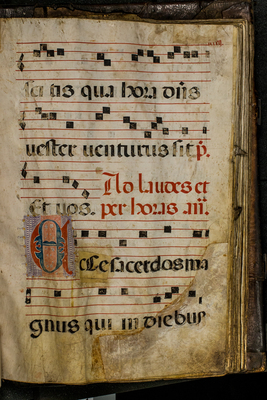 sci tis qua hora dn̄s
vester venturus sit p̄.
Ad laudes et
Et vos. per horas an̄.
Ecce sacerdos ma
gnus qui in diebus